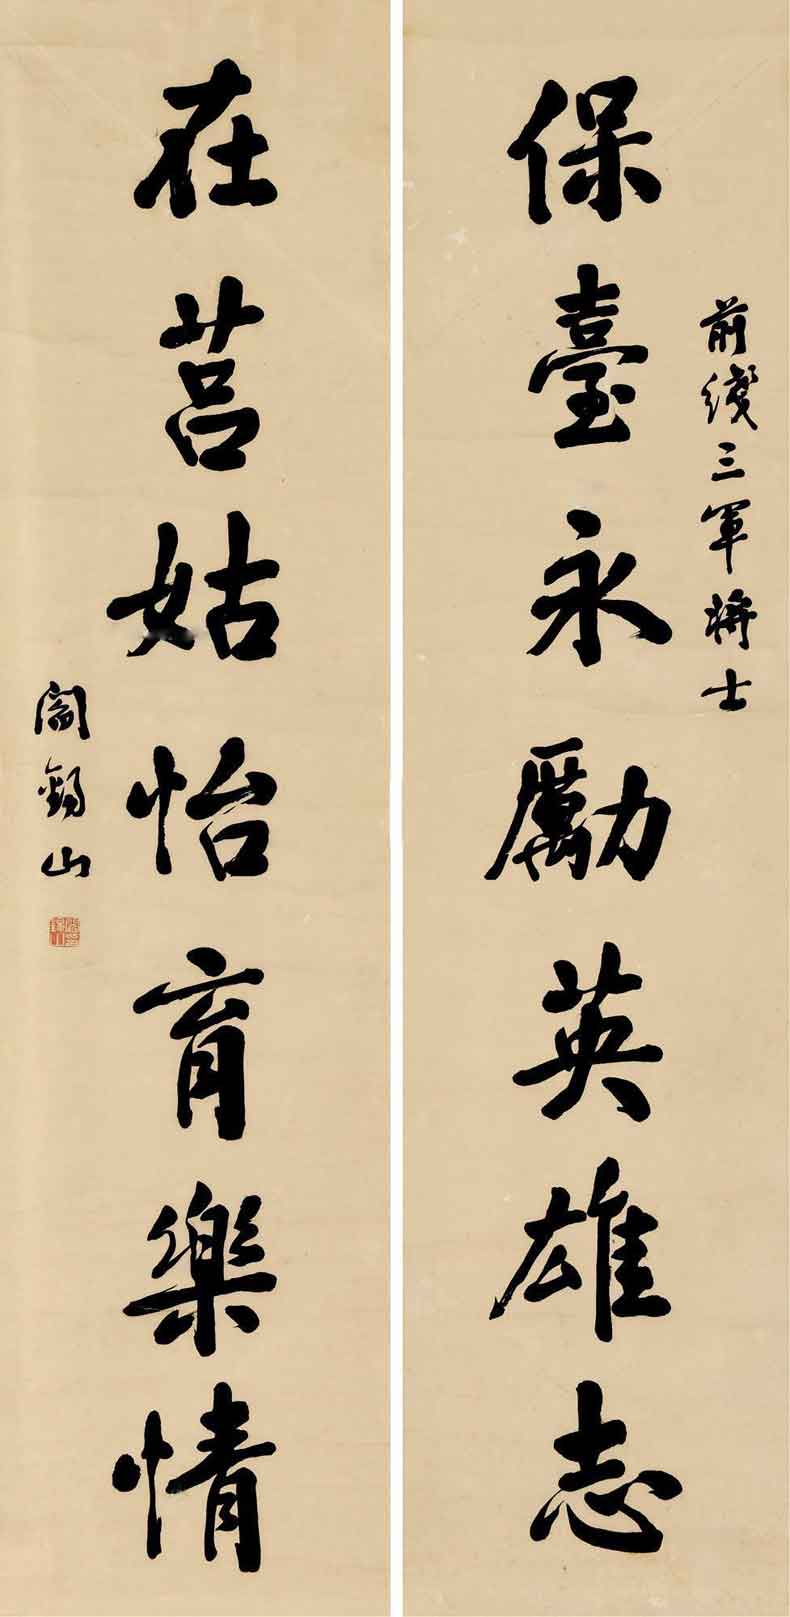 前綫三軍將士
保臺永勵英雄志
在莒姑怡育樂情
閻錫山